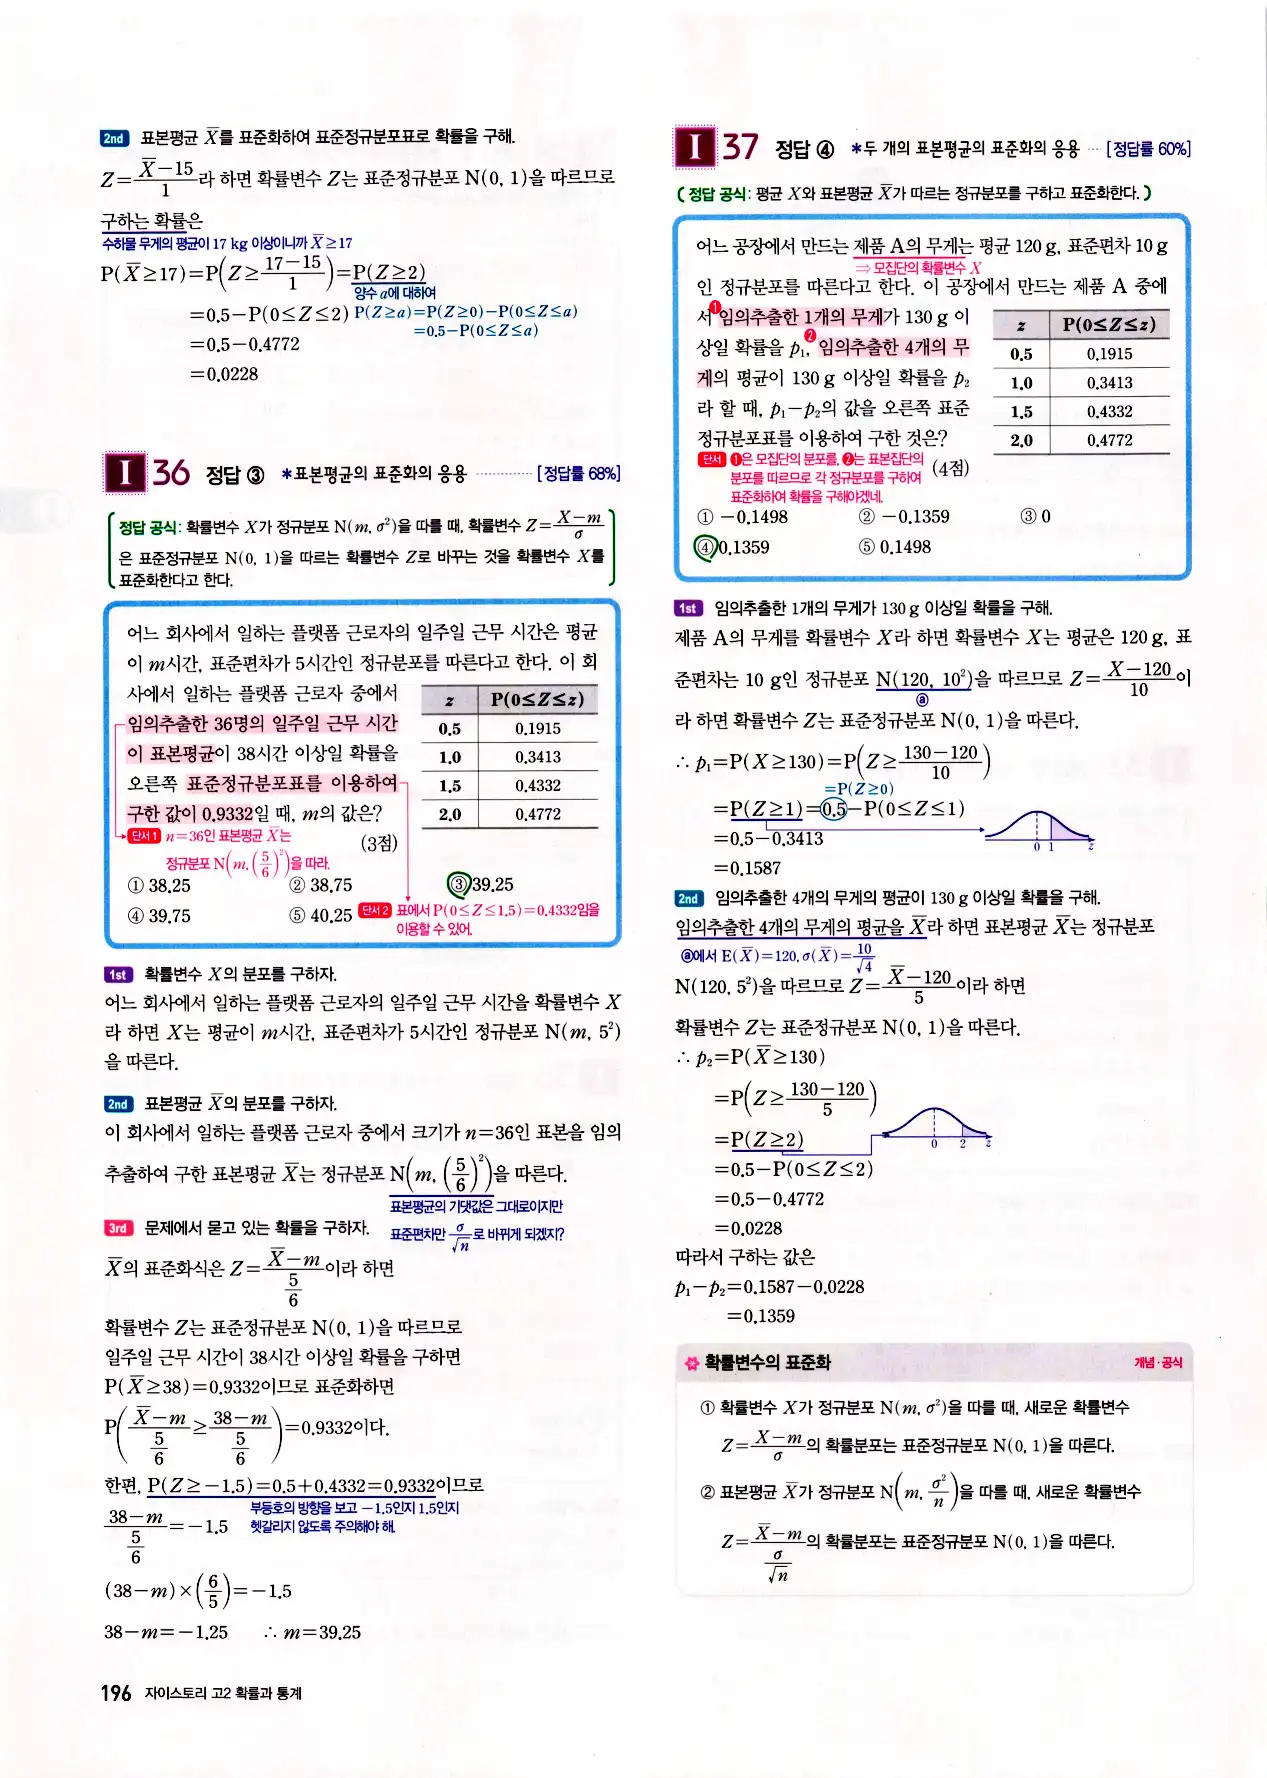 2nd 표본평균 X̄를 표준화하여 표준정규분포표로 확률을 구해.
Z=(X̄-15)/1라 하면 확률변수 Z는 표준정규분포 N(0, 1)을 따르므로
구하는 확률은
수하물 무게의 평균이 17 kg 이상이니까 X̄≥17
P(X̄≥17)=P(Z≥(17-15)/1)=P(Z≥2)
양수 a에 대하여
=0.5-P(0≤Z≤2) P(Z≥a)=P(Z≥0)-P(0≤Z≤a)
=0.5-P(0≤Z≤a)
=0.5-0.4772
=0.0228
I 36 정답 ③ *표본평균의 표준화의 응용 ············ [정답률 68%]
정답 공식: 확률변수 X가 정규분포 N(m, σ²)을 따를 때, 확률변수 Z=(X-m)/σ
은 표준정규분포 N(0, 1)을 따르는 확률변수 Z로 바꾸는 것을 확률변수 X를
표준화한다고 한다.
어느 회사에서 일하는 플랫폼 근로자의 일주일 근무 시간은 평균
이 m시간, 표준편차가 5시간인 정규분포를 따른다고 한다. 이 회
사에서 일하는 플랫폼 근로자 중에서
임의추출한 36명의 일주일 근무 시간
이 표본평균이 38시간 이상일 확률을
오른쪽 표준정규분포표를 이용하여
구한 값이 0.9332일 때, m의 값은?
단서1 n=36인 표본평균 X̄는
(3점)
정규분포 N(m, (5/6)²)을 따라.
z P(0≤Z≤z)
0.5 0.1915
1.0 0.3413
1.5 0.4332
2.0 0.4772
① 38.25 ② 38.75 ③ 39.25
④ 39.75 ⑤ 40.25 단서2 표에서 P(0≤Z≤1.5)=0.4332임을
이용할 수 있어.
1st 확률변수 X의 분포를 구하자.
어느 회사에서 일하는 플랫폼 근로자의 일주일 근무 시간을 확률변수 X
라 하면 X는 평균이 m시간, 표준편차가 5시간인 정규분포 N(m, 5²)
을 따른다.
2nd 표본평균 X̄의 분포를 구하자.
이 회사에서 일하는 플랫폼 근로자 중에서 크기가 n=36인 표본을 임의
추출하여 구한 표본평균 X̄는 정규분포 N(m, (5/6)²)을 따른다.
표본평균의 기댓값은 그대로이지만
3rd 문제에서 묻고 있는 확률을 구하자.
표준편차만 σ/√n로 바뀌게 되겠지?
X̄의 표준화식은 Z=(X̄-m)/(5/6)이라 하면
확률변수 Z는 표준정규분포 N(0, 1)을 따르므로
일주일 근무 시간이 38시간 이상일 확률을 구하면
P(X̄≥38)=0.9332이므로 표준화하면
P((X̄-m)/(5/6)≥(38-m)/(5/6))=0.9332이다.
한편, P(Z≥-1.5)=0.5+0.4332=0.9332이므로
부등호의 방향을 보고 -1.5인지 1.5인지
헷갈리지 않도록 주의해야 해.
(38-m)/(5/6)=-1.5
(38-m)×(6/5)=-1.5
38-m=-1.25 ∴ m=39.25
196 자이스토리 고2 확률과 통계
I 37 정답 ④ *두 개의 표본평균의 표준화의 응용 ··· [정답률 60%]
(정답 공식: 평균 X와 표본평균 X̄가 따르는 정규분포를 구하고 표준화한다.)
어느 공장에서 만드는 제품 A의 무게는 평균 120 g, 표준편차 10 g
⇒ 모집단의 확률변수 X
인 정규분포를 따른다고 한다. 이 공장에서 만드는 제품 A 중에
서 ❶임의추출한 1개의 무게가 130 g 이
상일 확률을 p₁, ❷임의추출한 4개의 무
게의 평균이 130 g 이상일 확률을 p₂
라 할 때, p₁-p₂의 값을 오른쪽 표준
정규분포표를 이용하여 구한 것은?
단서 ❶은 모집단의 분포를, ❷는 표본집단의
(4점)
분포를 따르므로 각 정규분포를 구하여
표준화하여 확률을 구해야겠네.
z P(0≤Z≤z)
0.5 0.1915
1.0 0.3413
1.5 0.4332
2.0 0.4772
① -0.1498 ② -0.1359 ③ 0
④ 0.1359 ⑤ 0.1498
1st 임의추출한 1개의 무게가 130 g 이상일 확률을 구해.
제품 A의 무게를 확률변수 X라 하면 확률변수 X는 평균은 120 g, 표
준편차는 10 g인 정규분포 N(120, 10²)을 따르므로 Z=(X-120)/10이
ⓐ
라 하면 확률변수 Z는 표준정규분포 N(0, 1)을 따른다.
∴ p₁=P(X≥130)=P(Z≥(130-120)/10)
=P(Z≥0)
=P(Z≥1)=0.5-P(0≤Z≤1)
=0.5-0.3413
0 1 z
=0.1587
2nd 임의추출한 4개의 무게의 평균이 130 g 이상일 확률을 구해.
임의추출한 4개의 무게의 평균을 X̄라 하면 표본평균 X̄는 정규분포
ⓐ에서 E(X̄)=120, σ(X̄)=10/√4
N(120, 5²)을 따르므로 Z=(X̄-120)/5이라 하면
확률변수 Z는 표준정규분포 N(0, 1)을 따른다.
∴ p₂=P(X̄≥130)
=P(Z≥(130-120)/5)
=P(Z≥2)
0 2 z
=0.5-P(0≤Z≤2)
=0.5-0.4772
=0.0228
따라서 구하는 값은
p₁-p₂=0.1587-0.0228
=0.1359
확률변수의 표준화 개념·공식
① 확률변수 X가 정규분포 N(m, σ²)을 따를 때, 새로운 확률변수
Z=(X-m)/σ의 확률분포는 표준정규분포 N(0, 1)을 따른다.
② 표본평균 X̄가 정규분포 N(m, σ²/n)을 따를 때, 새로운 확률변수
Z=(X̄-m)/(σ/√n)의 확률분포는 표준정규분포 N(0, 1)을 따른다.